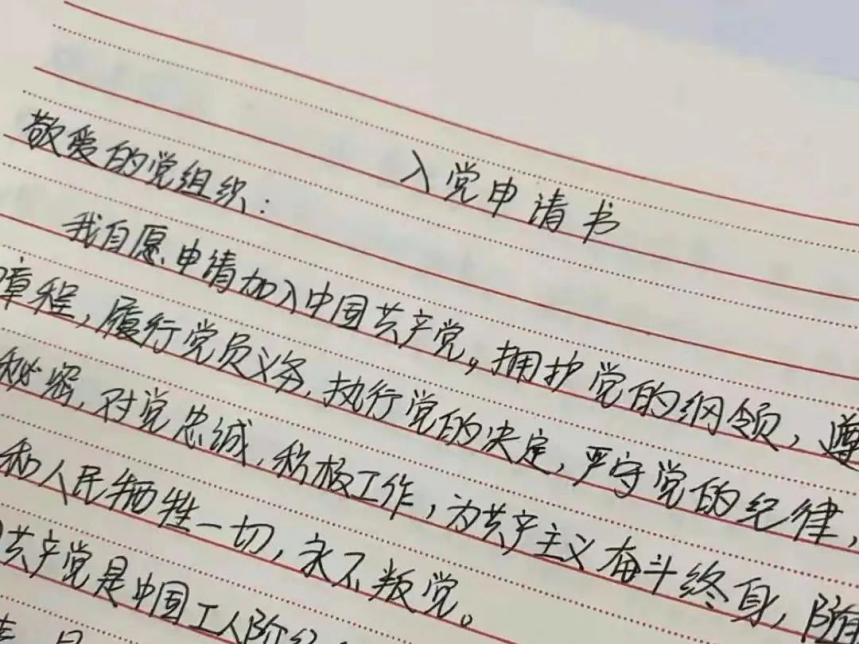 入党申请书
敬爱的党组织：
我自愿申请加入中国共产党，拥护党的纲领，遵
章程，履行党员义务，执行党的决定，严守党的纪律，
秘密，对党忠诚，积极工作，为共产主义奋斗终身，随
和人民牺牲一切，永不叛党。
共产党是中国工人阶